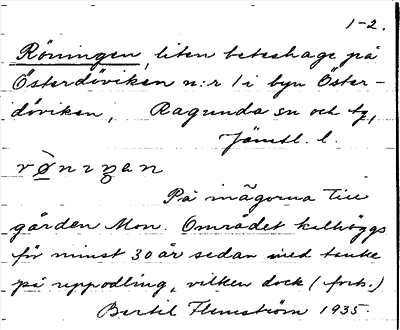 1-2.
Röningen, liten beteshage på
Österdöviken n:r 1 i byn Öster-
döviken, Ragunda sn och tg,
Jämtl. l.
På inägorna till
gården Mon. Området kalhöggs
för minst 30 år sedan med tanke
på uppodling, vilken dock (forts.)
Bertil Flemström 1935.